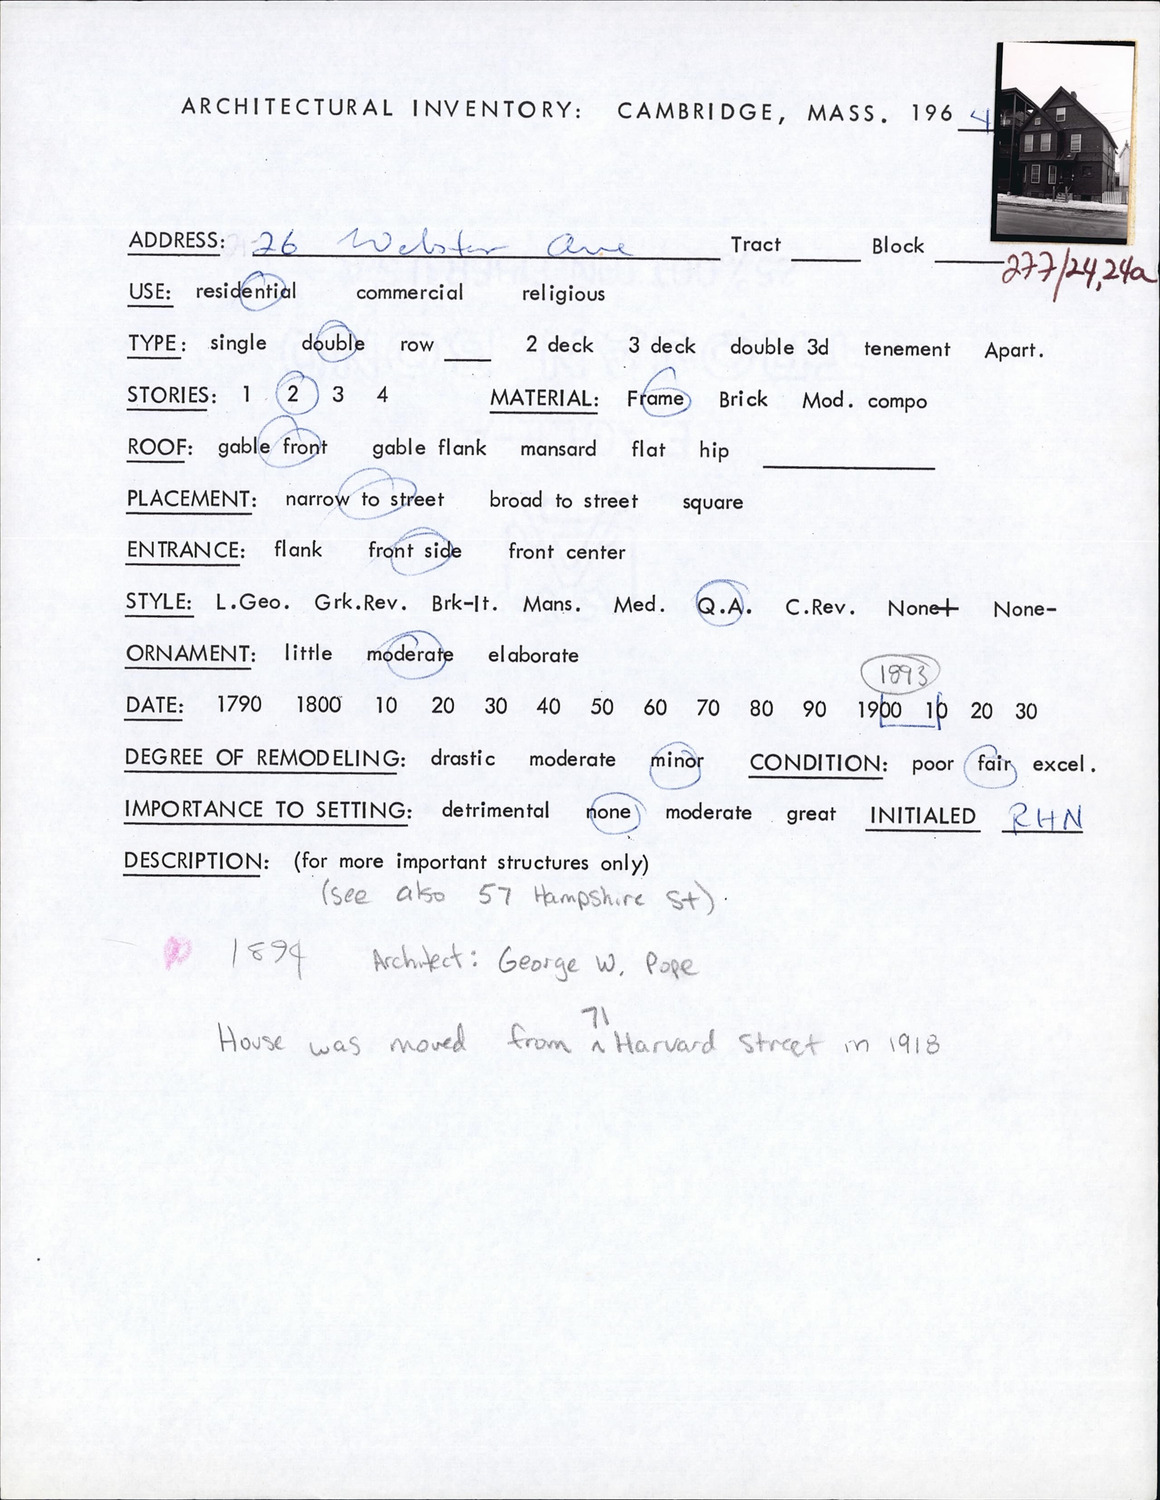 ARCHITECTURAL INVENTORY: CAMBRIDGE, MASS. 196 4
ADDRESS: 26 Webster Ave Tract ____ Block ____
277/24,24a
USE: residential commercial religious
TYPE: single double row ____ 2 deck 3 deck double 3d tenement Apart.
STORIES: 1 2 3 4 MATERIAL: Frame Brick Mod. compo
ROOF: gable front gable flank mansard flat hip ____
PLACEMENT: narrow to street broad to street square
ENTRANCE: flank front side front center
STYLE: L.Geo. Grk.Rev. Brk-It. Mans. Med. Q.A. C.Rev. None+ None-
ORNAMENT: little moderate elaborate
1893
DATE: 1790 1800 10 20 30 40 50 60 70 80 90 1900 10 20 30
DEGREE OF REMODELING: drastic moderate minor CONDITION: poor fair excel.
IMPORTANCE TO SETTING: detrimental none moderate great INITIALED RHN
DESCRIPTION: (for more important structures only)
(see also 57 Hampshire St).
1894 Architect: George W. Pope
71
House was moved from ^ Harvard Street in 1918